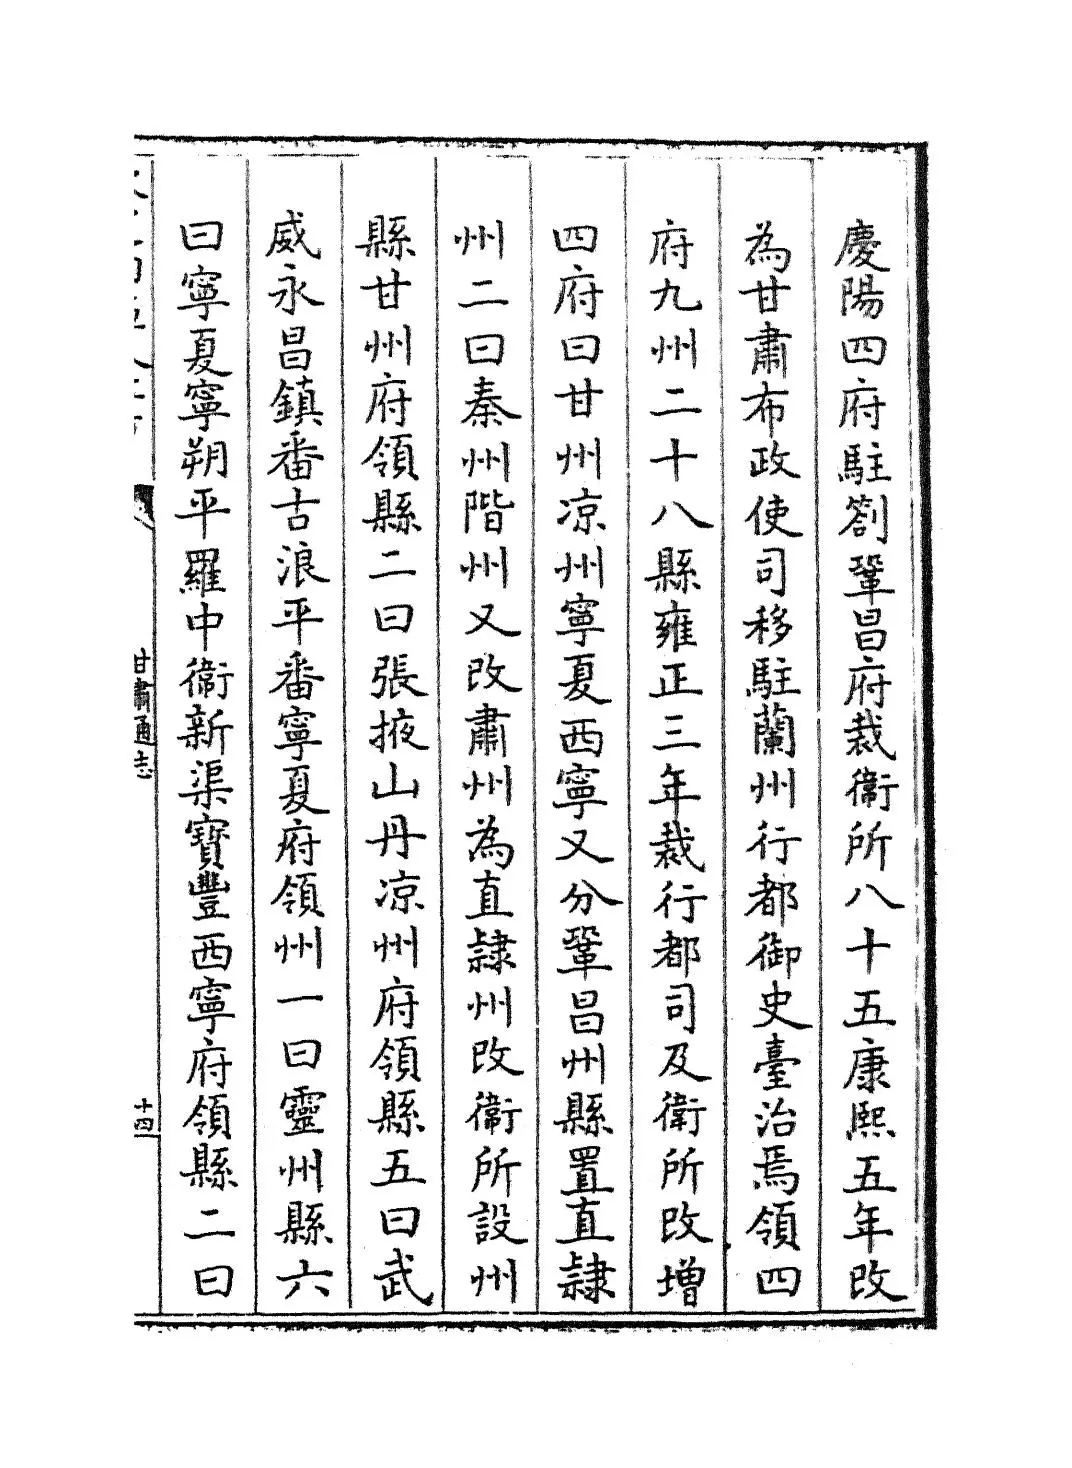 慶陽四府駐劄鞏昌府裁衞所八十五康熙五年改
為甘肅布政使司移駐蘭州行都御史臺治焉領四
府九州二十八縣雍正三年裁行都司及衞所改增
四府曰甘州凉州寧夏西寧又分鞏昌州縣置直隷
州二曰秦州階州又改肅州為直隷州改衞所設州
縣甘州府領縣二曰張掖山丹凉州府領縣五曰武
威永昌鎮番古浪平番寧夏府領州一曰靈州縣六
曰寧夏寧朔平羅中衞新渠寶豐西寧府領縣二曰
甘肅通志
十四